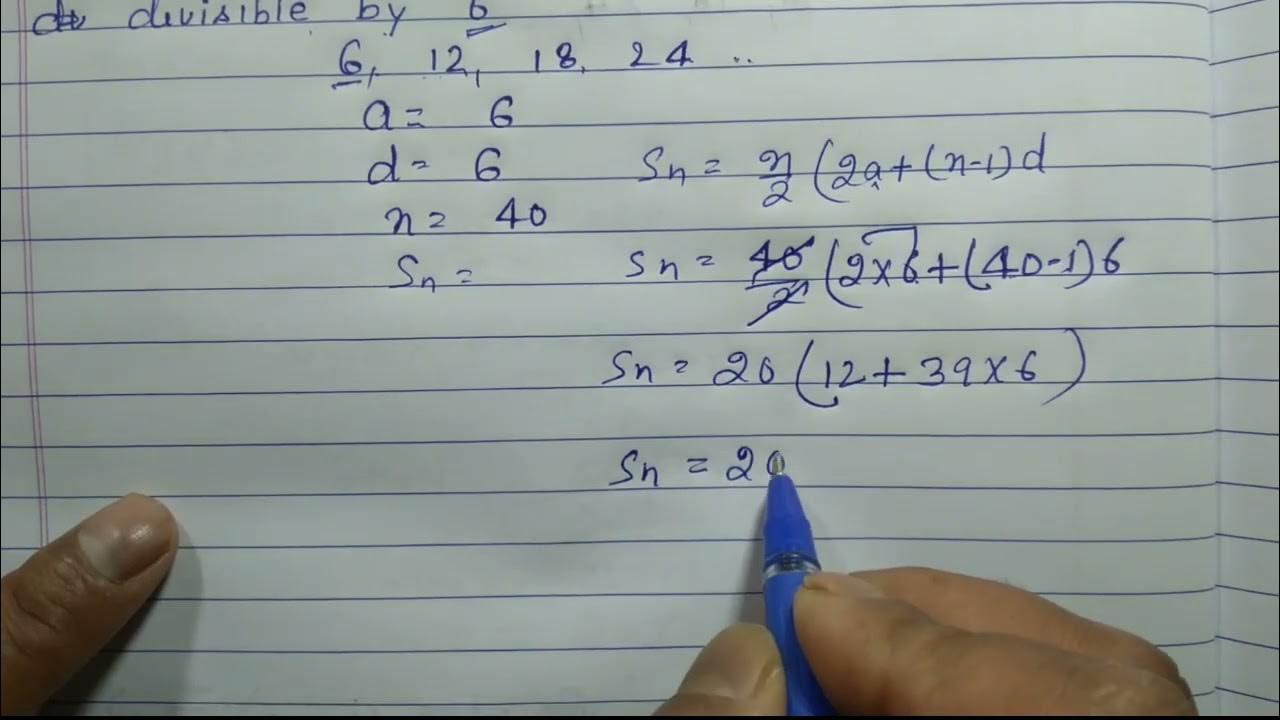 divisible by 6
6, 12, 18, 24 ..
a = 6
d = 6
Sn = n/2 (2a+(n-1)d
n = 40
Sn =
Sn = 40/2 (2×6+(40-1)6
Sn = 20 (12+39×6)
Sn = 20